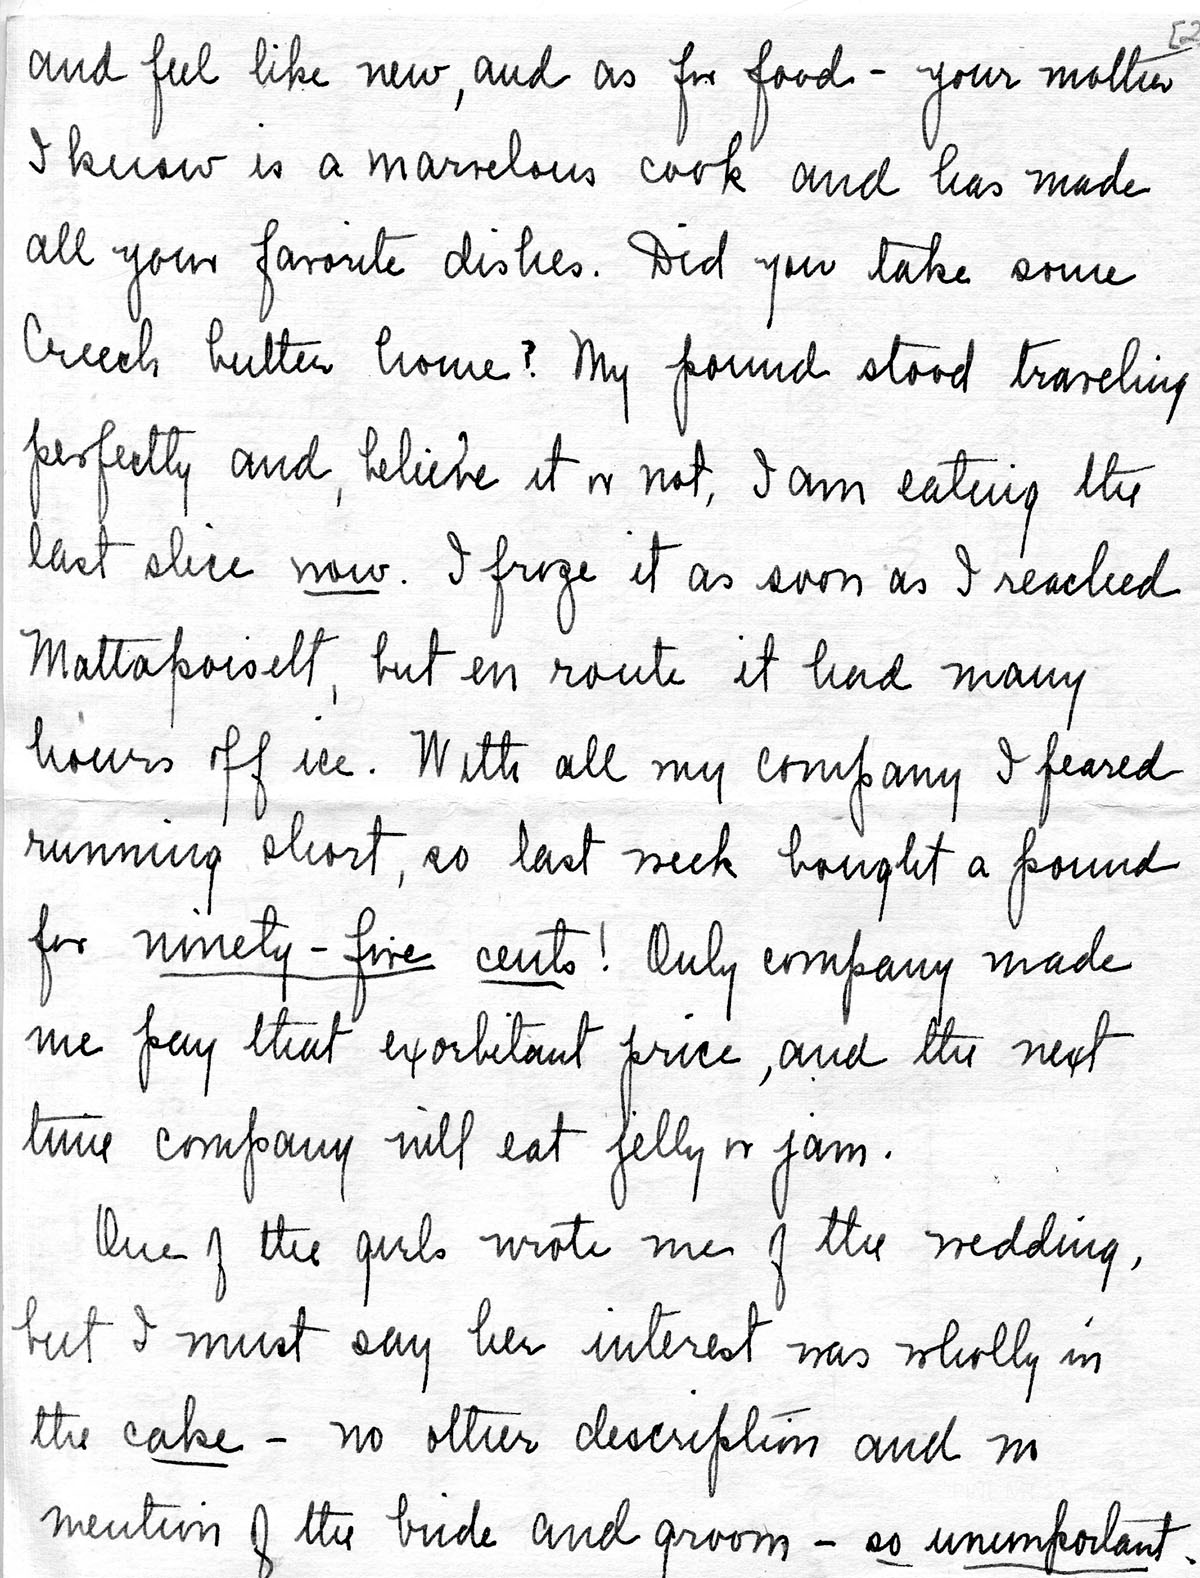 [2
and feel like new, and as for food - your mother
I know is a marvelous cook and has made
all your favorite dishes. Did you take some
Creech butter home? My pound stood traveling
perfectly and, believe it or not, I am eating the
last slice now. I froze it as soon as I reached
Mattapoisett, but en route it had many
hours off ice. With all my company I feared
running short, so last week bought a pound
for ninety-five cents! Only company made
me pay that exorbitant price, and the next
time company will eat jelly or jam.
One of the girls wrote me of the wedding,
but I must say her interest was wholly in
the cake - no other description and no
mention of the bride and groom - so unimportant.